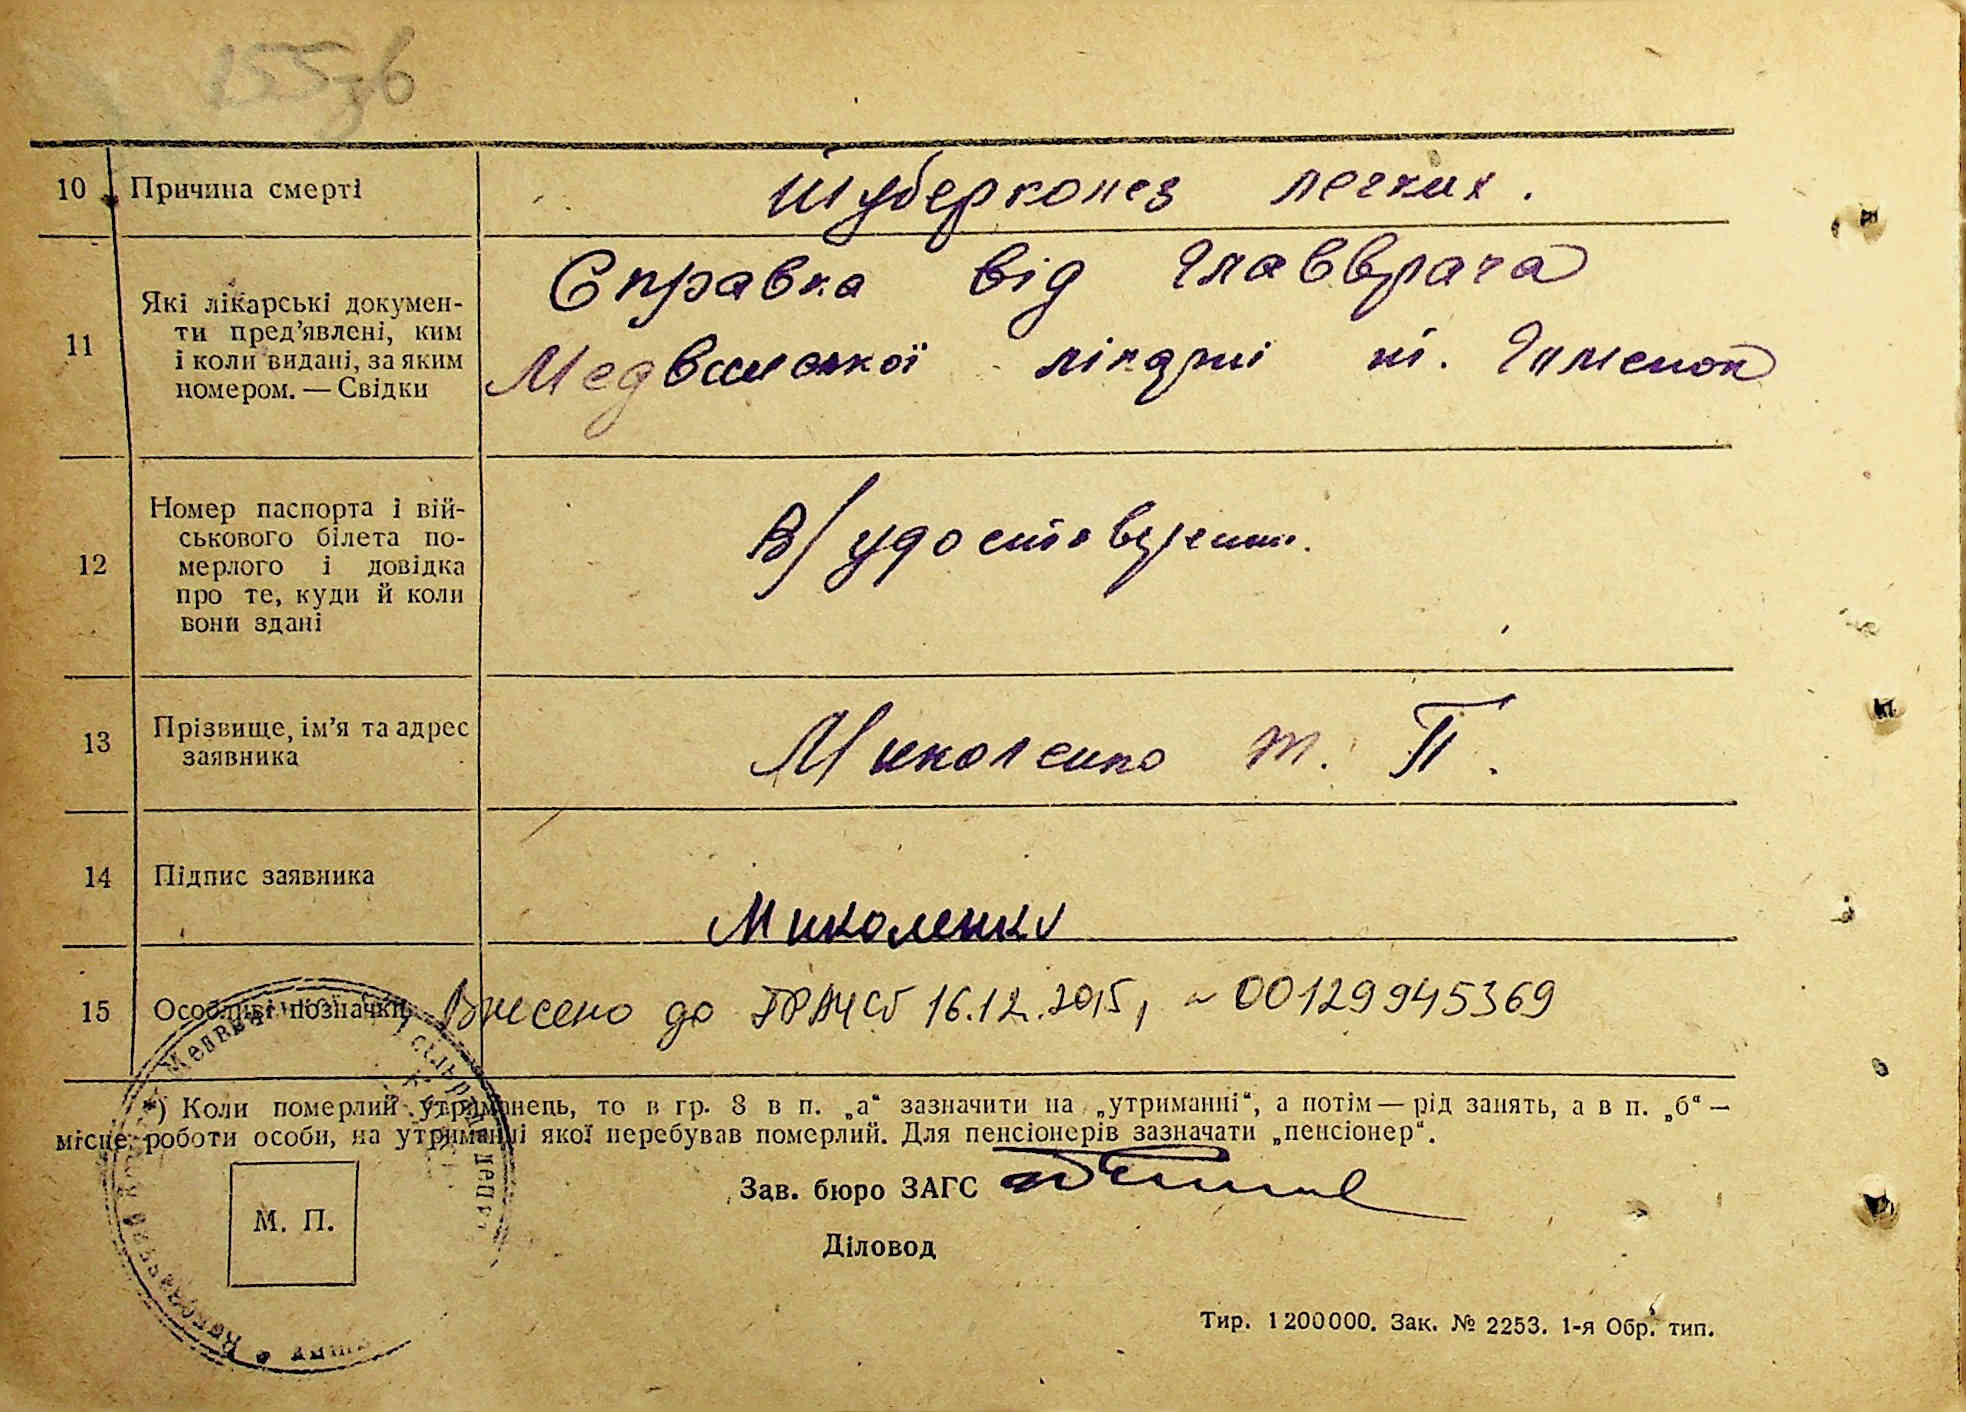 10 Причина смерті Туберкольоз легких.
11 Які лікарські докумен-
ти пред'явлені, ким
і коли видані, за яким
номером. — Свідки
Справка від Главврача
лікарні
12 Номер паспорта і вій-
ськового білета по-
мерлого і довідка
про те, куди й коли
вони здані
В/удостоверение.
13 Прізвище, ім'я та адрес
заявника
Миколенко т. П.
14 Підпис заявника
Миколенко
15 Особливі позначки Внесено до ДРАЦСГ 16.12.2015, ~ 00129945369
*) Коли померлий утриманець, то в гр. 8 в п. „а“ зазначити на „утриманні“, а потім — рід занять, а в п. „б“ —
місце роботи особи, на утриманні якої перебував померлий. Для пенсіонерів зазначати „пенсіонер“.
Зав. бюро ЗАГС
М. П.
Діловод
Тир. 1200000. Зак. № 2253. 1-я Обр. тип.